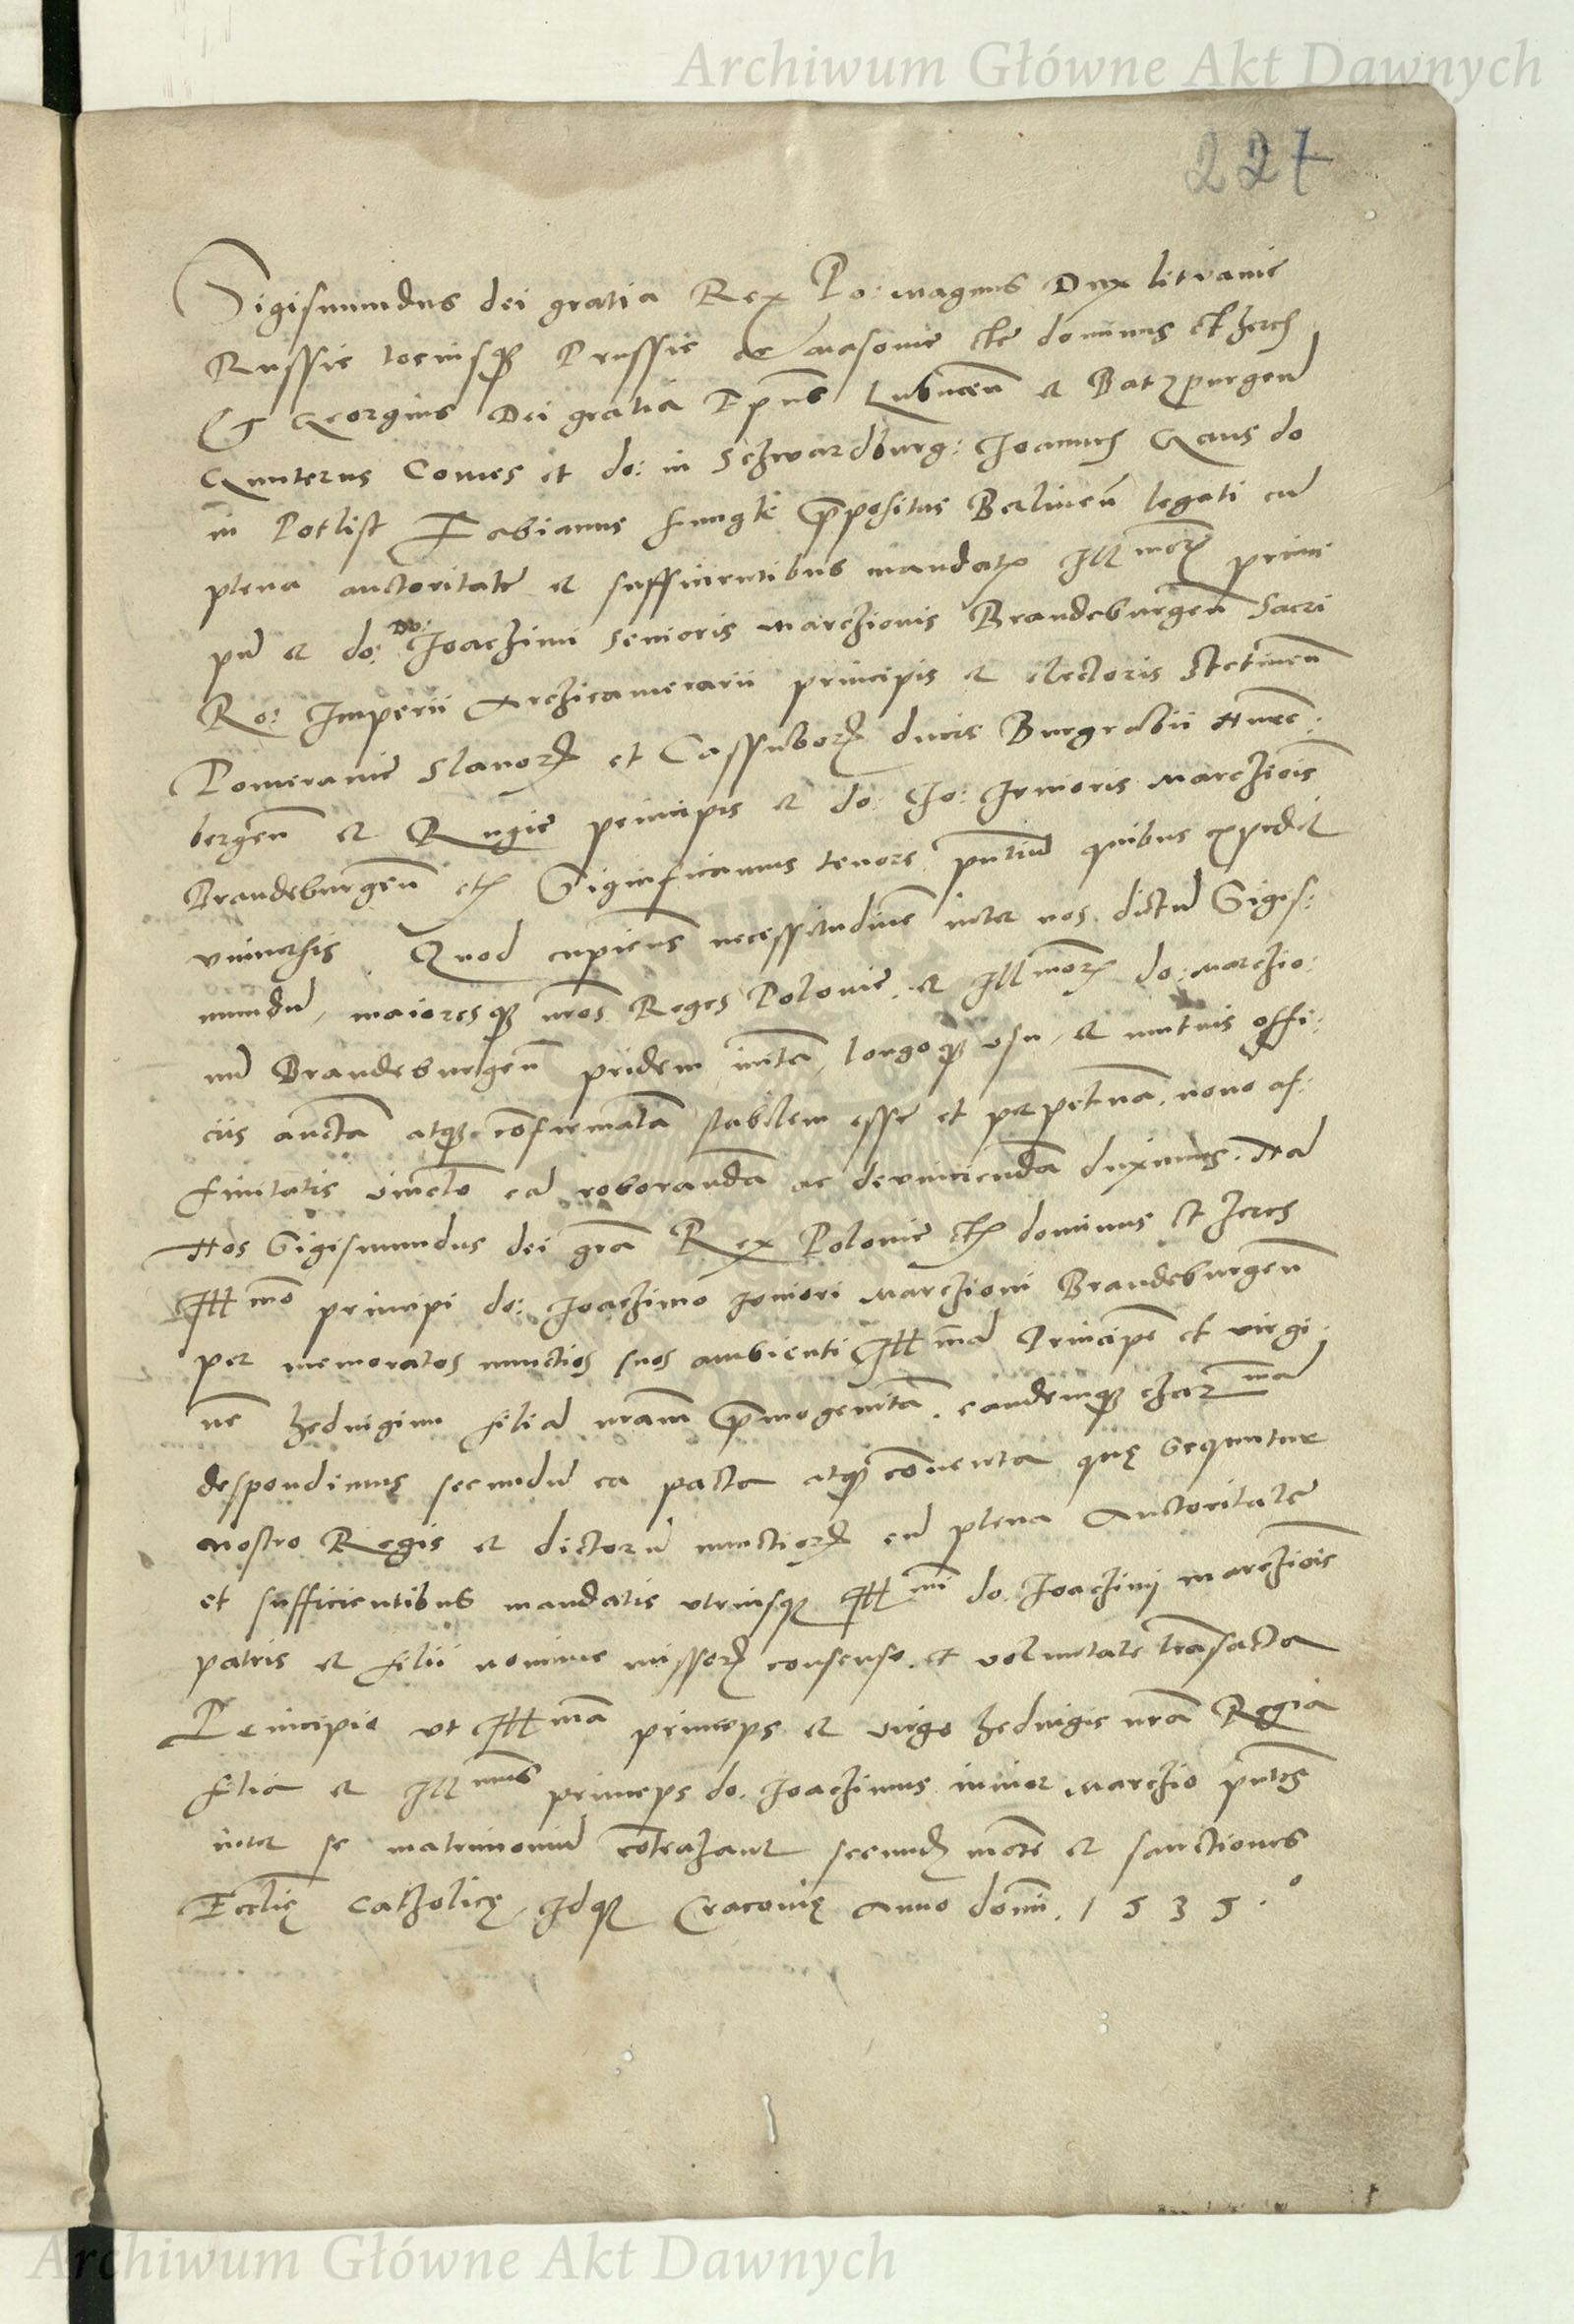 Archiwum Główne Akt Dawnych
227
Sigismundus dei gratia Rex Po: magnus Dux Litvanie
Russie tociusq3 Prussie ac Masovie etc dominus et heres
Et Georgius Dei gratia Epūs Lubucen̄ et Raczpurgen̄
Gunterus Comes et do: in Schwardburg: Joannes Gans do
in Potlist Fabianus Fungk p̄positus Berlinen̄ legati cū
plena auctoritate et sufficientibus mandatis Ill morꝝ princi
pū et do: Do: Joachimi Senioris Marchionis Brandeburgen̄ Sacri
Ro: Imperii Archicamerarii principis et electoris Stetinen̄
Pomeranie Slavorꝝ et Cassuborꝝ ducis Burgrabii Nurē:
bergen̄ et Rugie principis et do: Jo: Junioris Marchiōis
Brandeburgen̄ etc Significamus tenore p̄ntium quibus expedit
universis. Quod cupiens necessitudinē inter nos dictū Sigis:
mundū, maioresq3 nr̄os Reges Polonie, et Ill morꝝ do: Marchio:
nū Brandeburgen̄ pridem initā, longoq3 usu, et mutuis offi:
ciis auctā atq3 cōfirmatā stabilem esse et perpetuā, novo af:
finitatis vinclo eā roborandā ac devinciendā duximus. Nā
Nos Sigismundus dei grā Rex Polonie etc dominus et heres
Ill mo principi do: Joachimo Juniori Marchioni Brandeburgen̄
per memoratos nunctios suos ambienti Ill mā Principē et virgi:
nē Hedvigim filiā nr̄am p̄mogenitā, eandemq3 char mā
despondimus secundū ea pacta atq3 conventa quę sequuntur
nostro Regis et dictorū nunctiorꝝ cū plena Auctoritate
et sufficientibus mandatis utriusq3 Ill mi do. Joachimi marchiōis
patris et filii nomine missorꝝ consensu, et voluntate trāsacta
Principio ut Ill mā princeps et virgo Hedvigis nr̄a Regia
filia et Ill mus princeps do. Joachimus iunior Marchio p̄ntes
inter se matrimoniū cōtrahant secundū morē et sanctiones
Eccl̄ię Catholicę, Idq3 Cracovię Anno domī. 1535.
Archiwum Główne Akt Dawnych